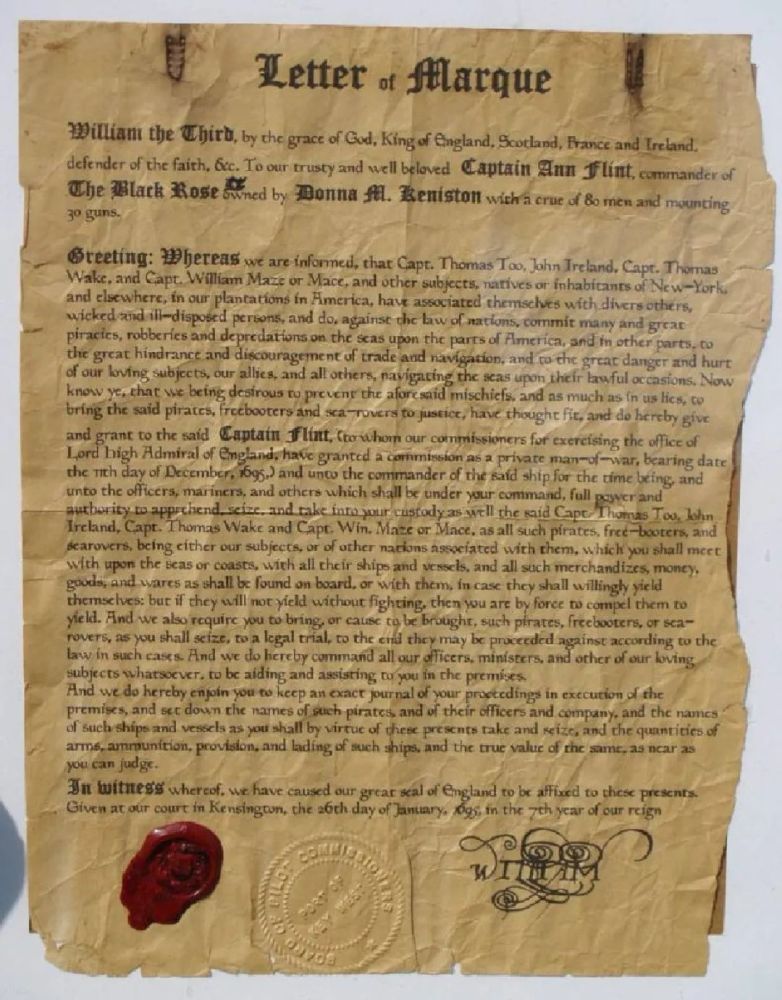 Letter of Marque
William the Third, by the grace of God, King of England, Scotland, France and Ireland,
defender of the faith, &c. To our trusty and well beloved Captain Ann Flint, commander of
The Black Rose owned by Donna M. Keniston with a crue of 80 men and mounting
30 guns.
Greeting: Whereas we are informed, that Capt. Thomas Too, John Ireland, Capt. Thomas
Wake, and Capt. William Maze or Mace, and other subjects, natives or inhabitants of New-York,
and elsewhere, in our plantations in America, have associated themselves with divers others,
wicked and ill-disposed persons, and do, against the law of nations, commit many and great
piracies, robberies and depredations on the seas upon the parts of America, and in other parts, to
the great hindrance and discouragement of trade and navigation, and to the great danger and hurt
of our loving subjects, our allies, and all others, navigating the seas upon their lawful occasions. Now
know ye, that we being desirous to prevent the aforesaid mischiefs, and as much as in us lies, to
bring the said pirates, freebooters and sea-rovers to justice, have thought fit, and do hereby give
and grant to the said Captain Flint, (to whom our commissioners for exercising the office of
Lord High Admiral of England, have granted a commission as a private man-of-war, bearing date
the 11th day of December, 1695,) and unto the commander of the said ship for the time being, and
unto the officers, mariners, and others which shall be under your command, full power and
authority to apprehend, seize, and take into your custody as well the said Capt. Thomas Too, John
Ireland, Capt. Thomas Wake and Capt. Win. Maze or Mace, as all such pirates, free-booters, and
searovers, being either our subjects, or of other nations associated with them, which you shall meet
with upon the seas or coasts, with all their ships and vessels, and all such merchandizes, money,
goods, and wares as shall be found on board, or with them, in case they shall willingly yield
themselves: but if they will not yield without fighting, then you are by force to compel them to
yield. And we also require you to bring, or cause to be brought, such pirates, freebooters, or sea-
rovers, as you shall seize, to a legal trial, to the end they may be proceeded against according to the
law in such cases. And we do hereby command all our officers, ministers, and other of our loving
subjects whatsoever, to be aiding and assisting to you in the premises.
And we do hereby enjoin you to keep an exact journal of your proceedings in execution of the
premises, and set down the names of such pirates, and of their officers and company, and the names
of such ships and vessels as you shall by virtue of these presents take and seize, and the quantities of
arms, ammunition, provision, and lading of such ships, and the true value of the same, as near as
you can judge.
In witness whereof, we have caused our great seal of England to be affixed to these presents.
Given at our court in Kensington, the 26th day of January, 1695, in the 7th year of our reign
BOARD OF PILOT COMMISSIONERS
PORT OF
KEY WEST